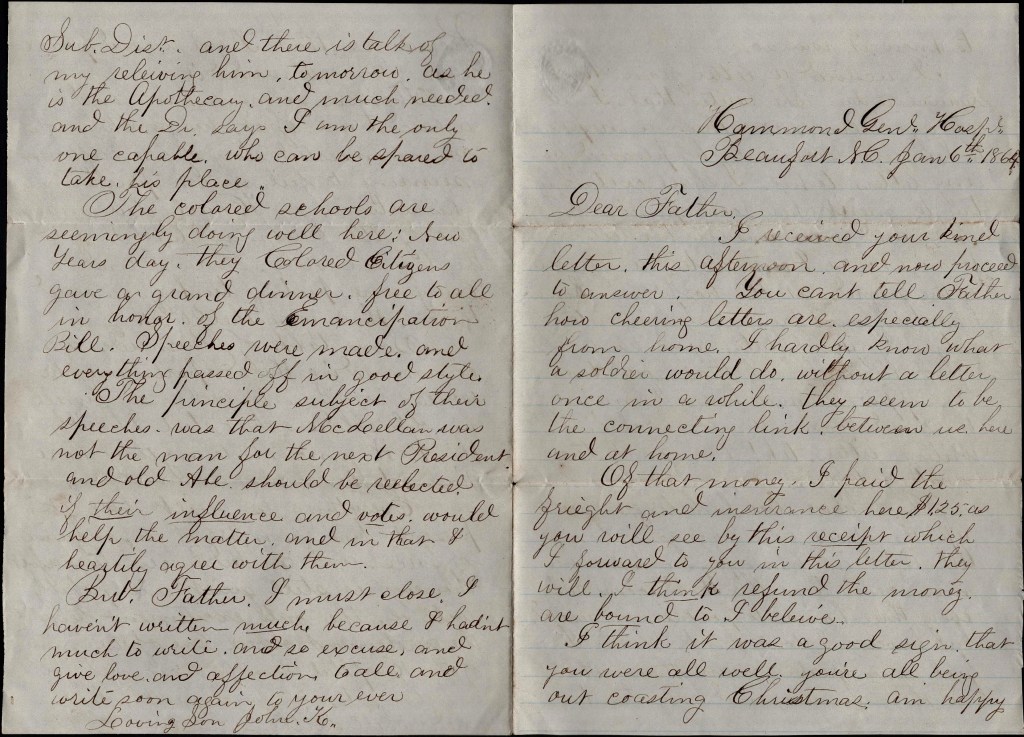 Hammond Genl. Hospl.
Beaufort N.C. Jan 6th 1864
Dear Father,
I received your kind
letter, this afternoon, and now proceed
to answer. You cant tell Father
how cheering letters are, especially
from home, I hardly know what
a soldier would do, without a letter
once in a while, they seem to be
the connecting link, between us here
and at home.
Of that money, I paid the
frieght and insurance here, $1,25, as
you will see by this receipt which
I forward to you in this letter, they
will, I think refund the money,
are bound to I beleive.
I think it was a good sign, that
you were all well, you're all being
out coasting Christmas, am happy
Sub. Dist. and there is talk of
my releiving him, tomorrow, as he
is the Apothecary, and much needed,
and the Dr. says I am the only
one capable, who can be spared to
take his place.
The colored schools are
seemingly doing well here; New
Years day, they Colored Citizens
gave a grand dinner, free to all
in honor, of the Emancipation
Bill. Speeches were made, and
everything passed off in good style.
The principle subject of their
speeches, was that McLellan was
not the man for the next President
and old Abe, should be reelected
if their influence and votes, would
help the matter, and in that I
heartily agree with them.
But, Father, I must close, I
haven't written much, because I hadn't
much to write, and so excuse, and
give love, and affection, to all, and
write soon again to your ever
Loving Son John. K.